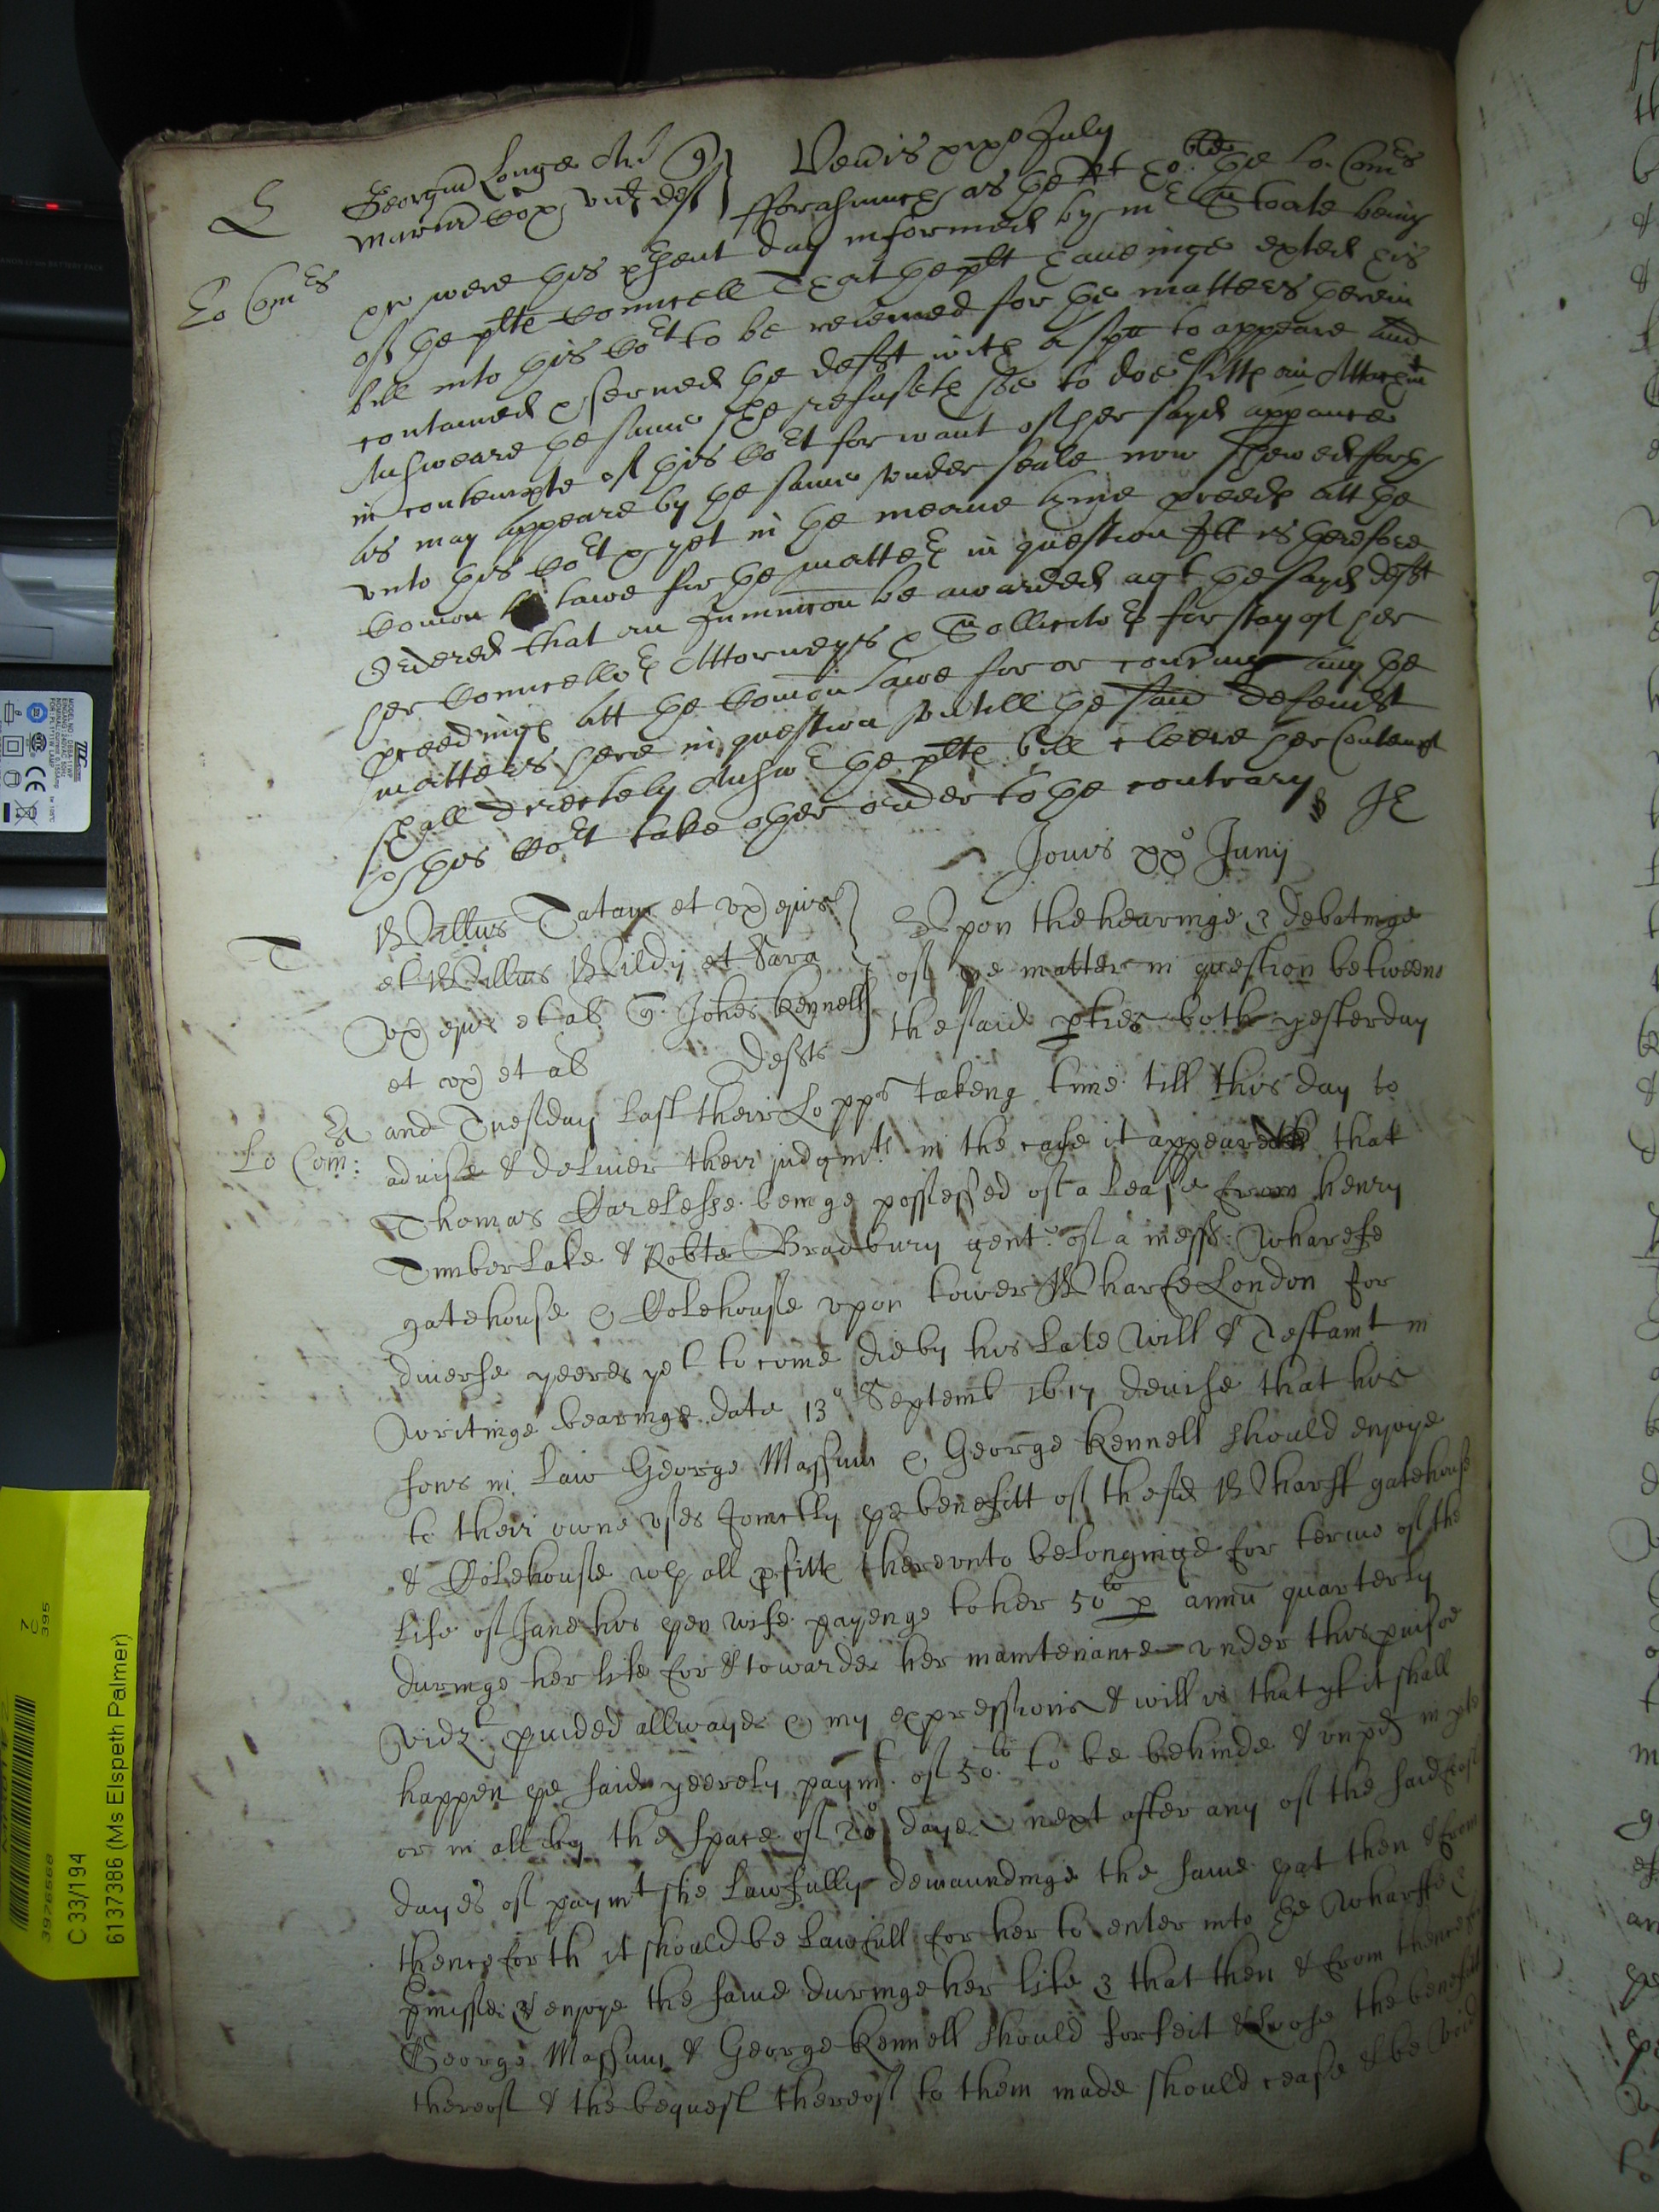 L
Georgiu Longe Ar q
Maria Cox vid deft
Lo Comrs
Forasmuch as the Rt ho:ble the Lo: Comrs
were this present day informed by mr being
of the plts Councell That the plt haveinge exhted his
bill into this Cort to be releived for the matters therein
contained & served the deft with a spa to appeare and
Answeare the same she refuseth soe to doe sitts an Attachmt
in contempte of this Cort for want of her sayd appance
as may appeare by the same under seale now shewed forth
unto this Cort & yet in the meane tyme pceeds att the
Comon lawe for the matters in question Itt is therefore
Ordered that an Iniunccon be awarded agt the sayd deft
her Councellors Attorneys & Sollicitors for stay of her
pceedings att the Comon lawe for or concning any the
matters here in question untill the said Defendt
shall directely Answr the plts bill cleere her Contempt
& this Cort take other order to the contrary JE
Jovis xxo Junij
T
Willus Tatam et ux ejus
et Willus Wildy et Sara
ux ejus et als q. Johes Kennell
et ux et als Defts
Lo Com:rs
Upon the hearinge & debatinge
of the matter in question betweene
the said pties both yesterday
and Tuesday last their Lopps takeng time till this day to
advise & deliver their judgmts in the case it appeared that
Thomas Carelesse beinge possessed of a lease from henry
Timberlake & Robte Bradbury gent. of a mess: wharefe
gatehouse & Colehouse upon tower Wharfe London for
diverse yeeres yet to come did by his late will & Testamt in
writinge bearinge date 13o Septemb 1617 devise that his
sons in Law George Massum & George Kennell should enjoye
to their owne uses Joinctly the benefitt of the sd Wharff gatehouse
& Colehouse wth all pfitts thereunto belonginge for terme of the
life of Jane his then wife payenge to her 50li p annu quarterly
duringe her life for & towardes her maintenance under this pviso
vidzt pvided allwayes & my expression & will is that if it shall
happen the said yeerely paymt. of 50.li to be behinde & unpd in pte
or in all by the space of 20 dayes next after any of the said feast
dayes of paymt she lawfully demaundinge the same that then & from
thenceforth it should be lawfull for her to enter into the wharffe &
pmisses & enjoye the same duringe her life & that then & from thence
George Massum & George Kennell should forfeit & loose the benefitt
thereof & the bequest thereof to them made should cease & be void
C 33/194
6137386 (Ms Elspeth Palmer)